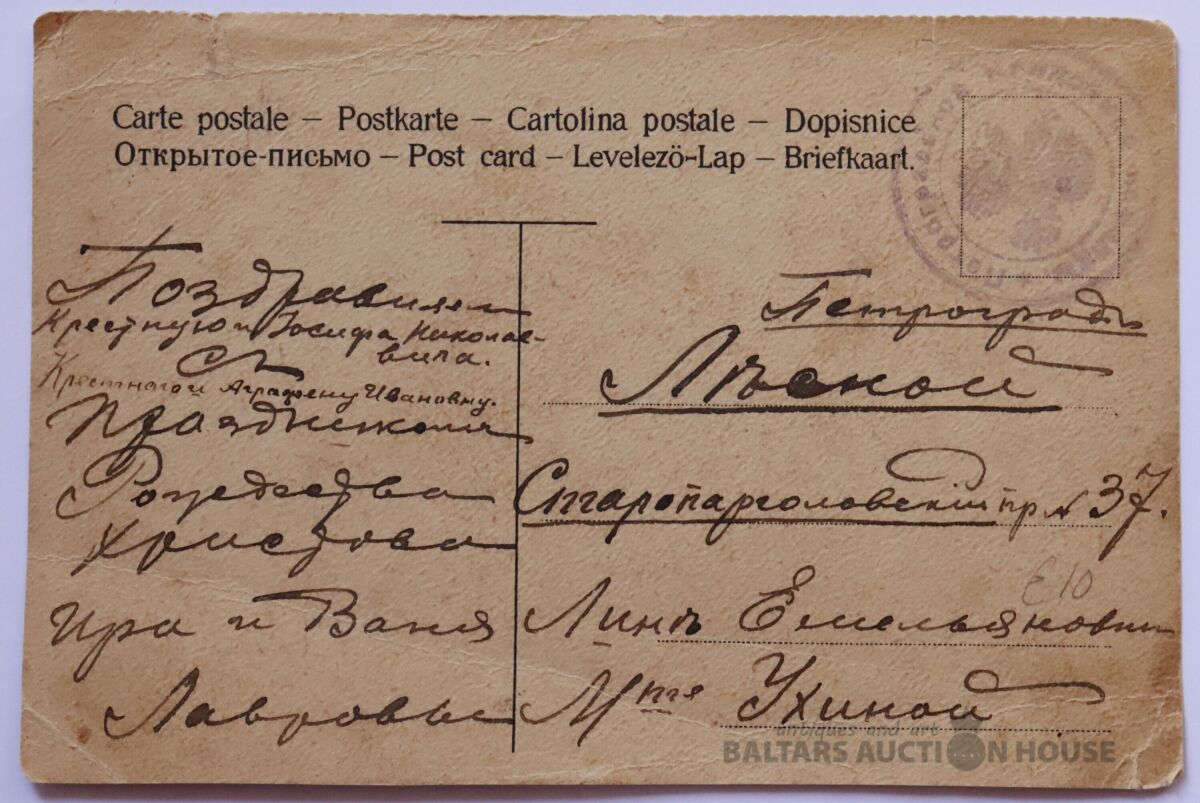 Carte postale – Postkarte – Cartolina postale – Dopisnice
Открытое-письмо – Post card – Levelezö-Lap – Briefkaart.
Поздравляем
Крестную и Iосифа Николае-
вича.
Съ
Крестнаго и Аграфену Ивановну.
Праздником
Рождества
Христова
Ира и Ваня
Лавровы
Петроградъ
Лѣсной
Старопарголовскiй пр № 37.
Емельяновн
М-ття Ухиной
Е10
antiques and art
BALTARS AUCTION HOUSE